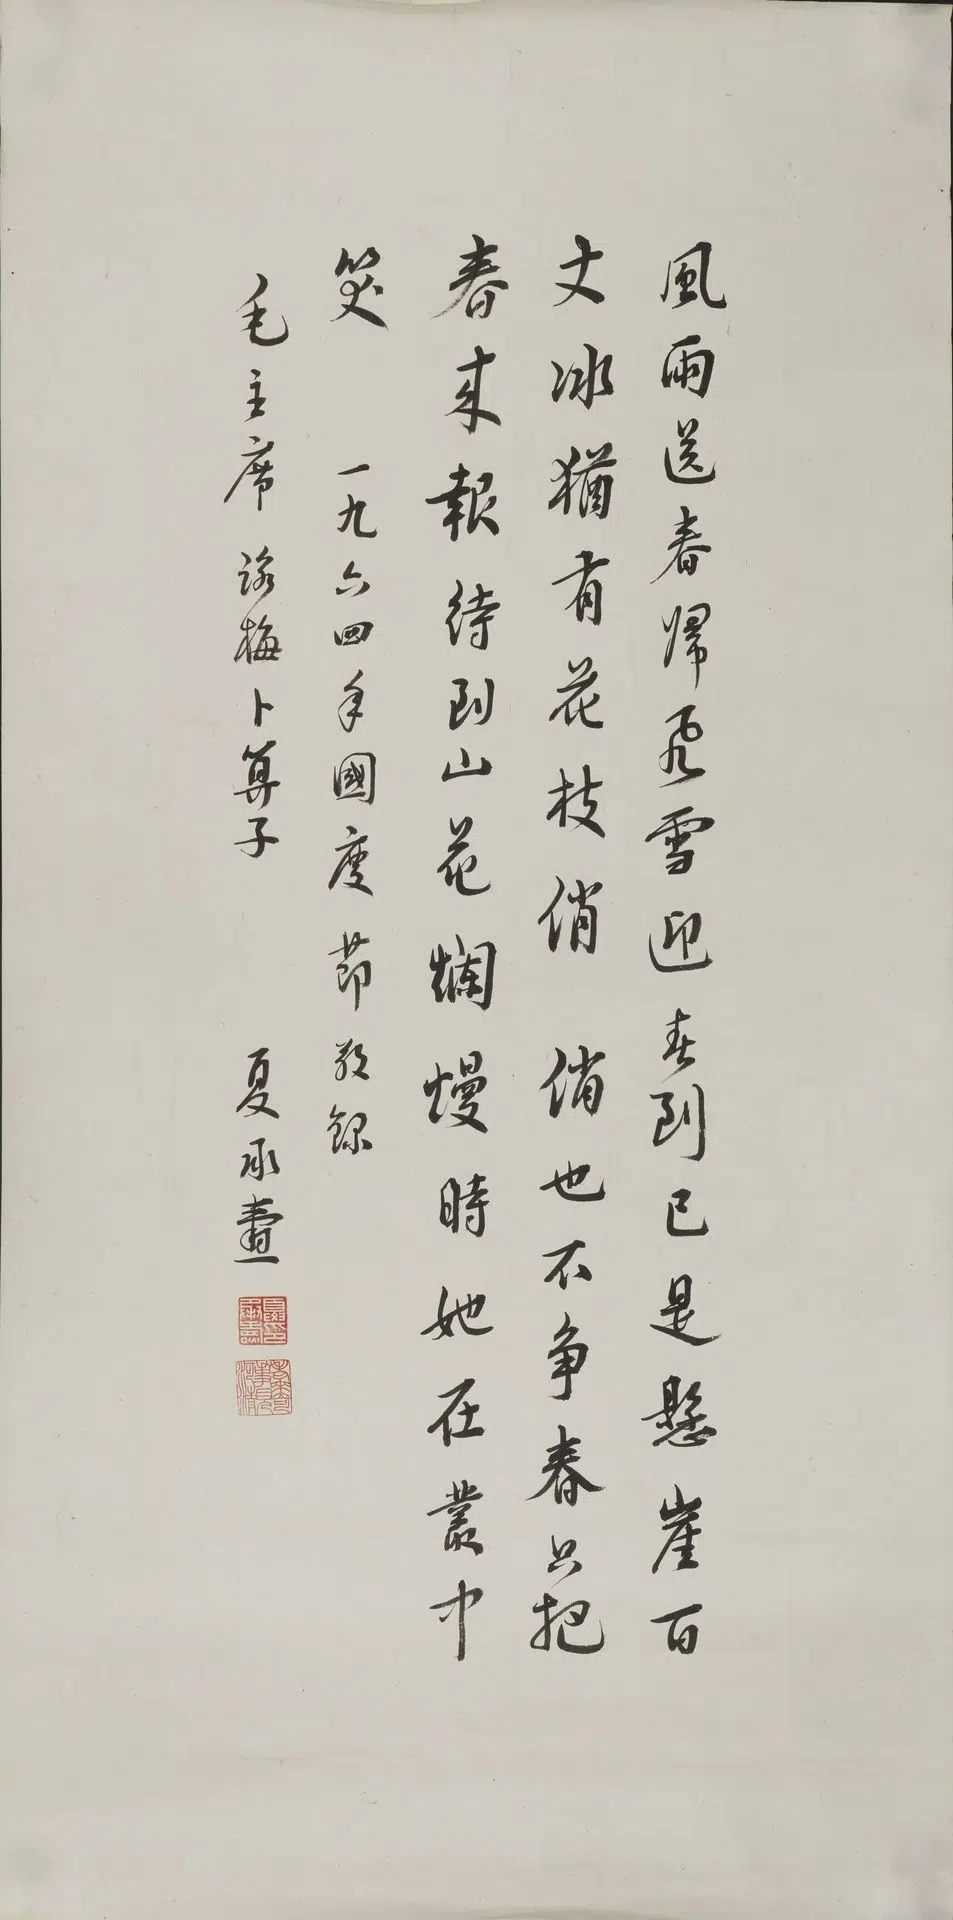 風雨送春歸飛雪迎春到已是懸崖百
丈冰猶有花枝俏 俏也不爭春只把
春來報待到山花爛熳時她在叢中
笑 一九六四年國慶節敬錄
毛主席詠梅卜算子 夏承燾